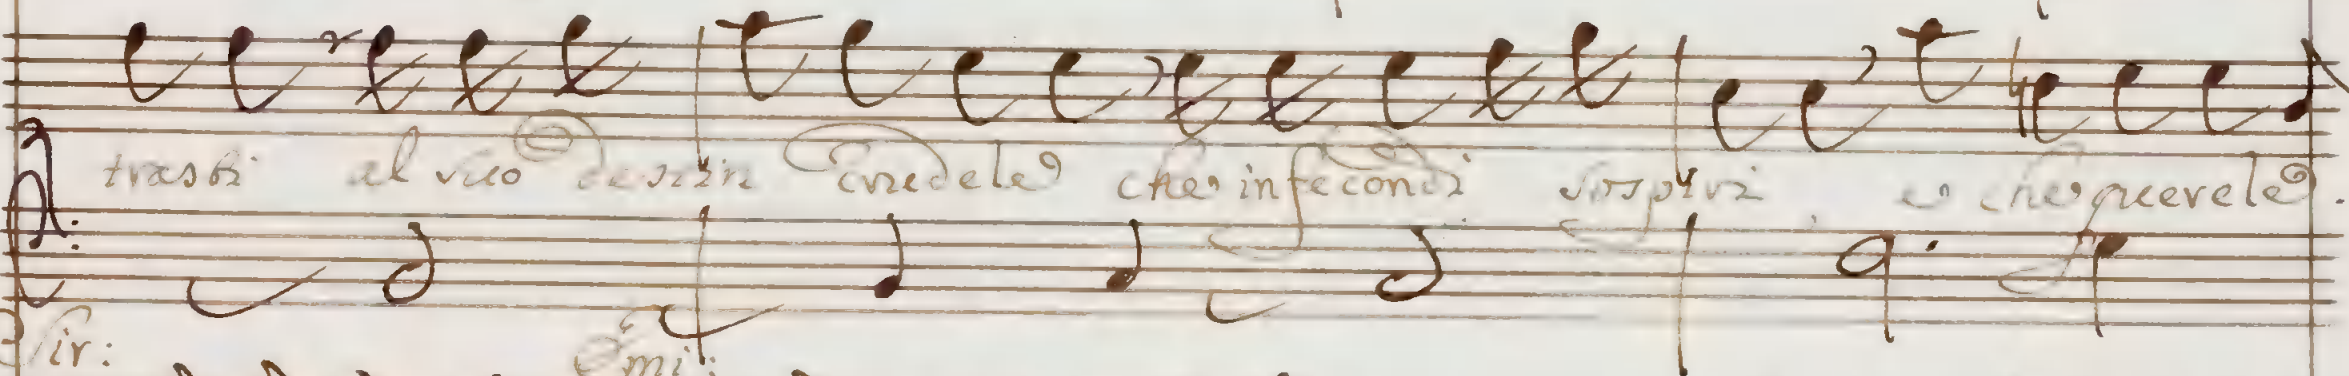 trasti al suo destin crudele che infecondi sospiri e che querele.
Sir: Emi: